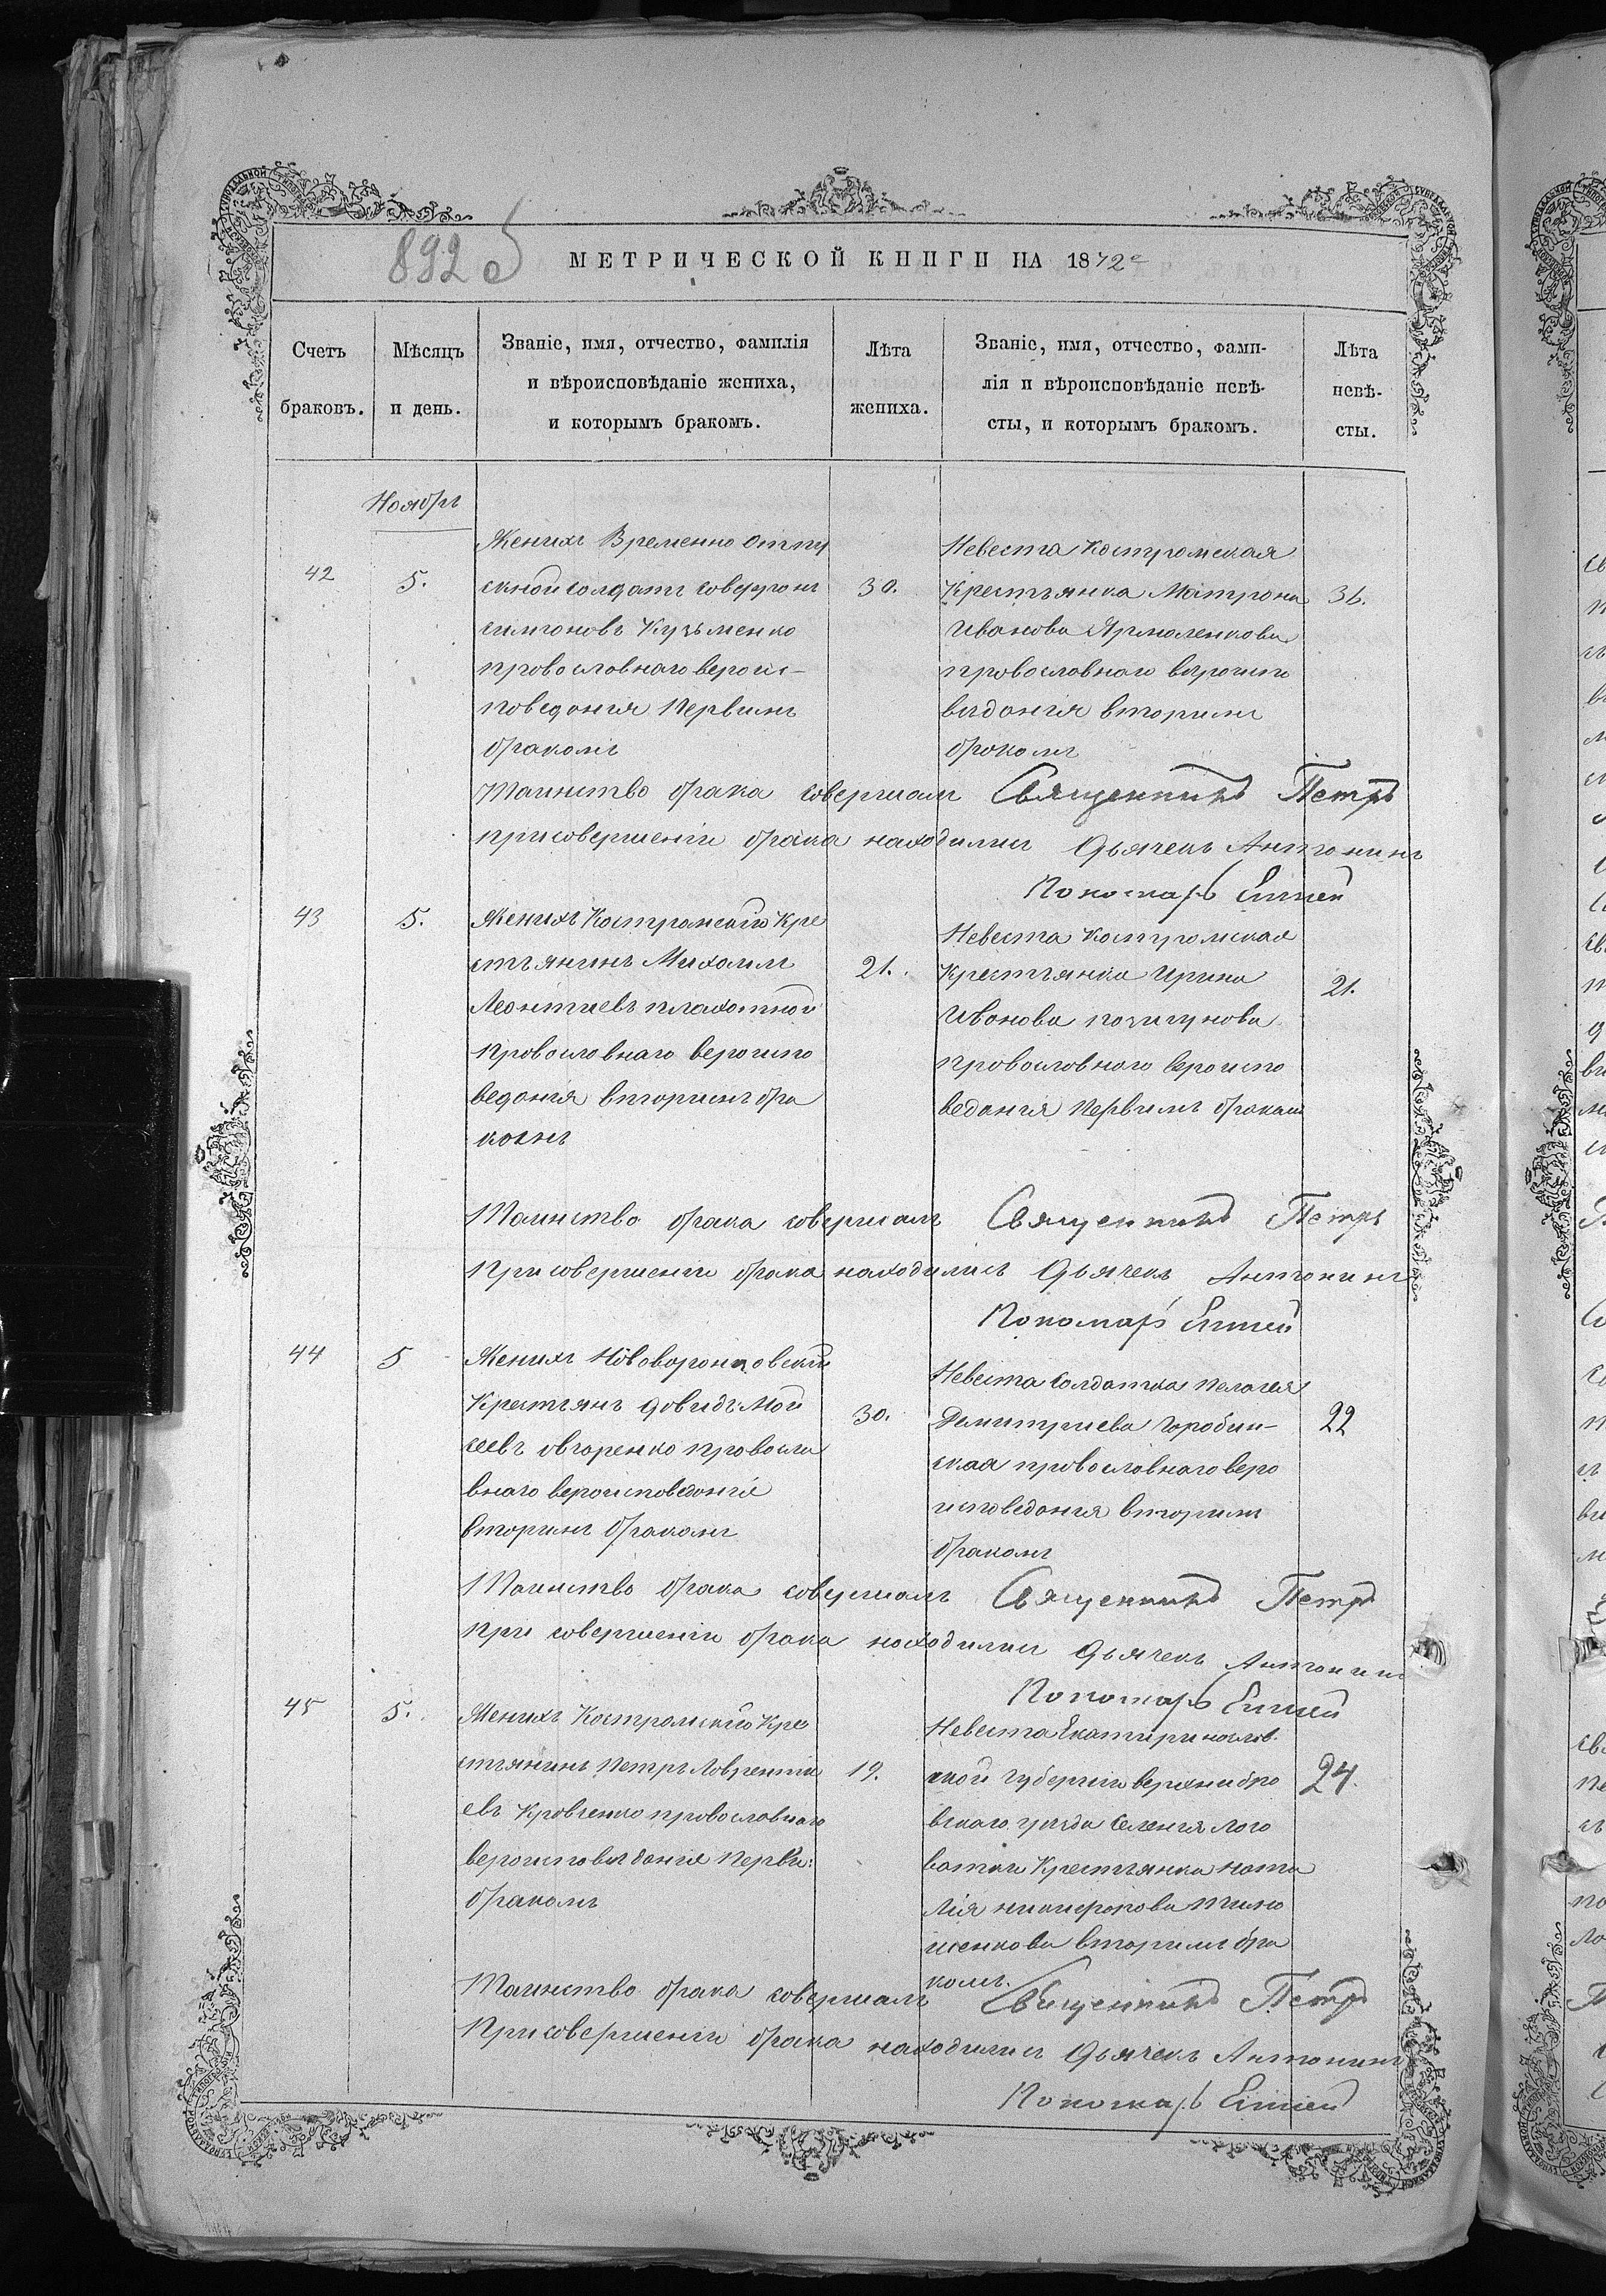 892 об
МЕТРИЧЕСКОЙ КНИГИ НА 1872е
Счетъ браковъ.
Мѣсяцъ и день.
Званіе, имя, отчество, фамилія
и вѣроисповѣданіе жениха,
и которымъ бракомъ.
Лѣта жениха.
Званіе, имя, отчество, фами-
лія и вѣроисповѣданіе невѣ-
сты, и которымъ бракомъ.
Лѣта невѣ-
сты.
Ноябрь
42
5.
Женихъ Временно отпу
скной солдатъ Софронъ
Симоновъ Кузьменко
провославнаго вероис-
поведания Первимъ
бракомъ
30.
Невеста Костромская
Крестьянка Матрона
Иванова Ярмоленкова
провославнаго вероиспо
ведания вторимъ
бракомъ
36.
Таинство брака совершалъ Священникъ Петръ
при совершеніи брака находились Дьячекъ Антонинъ
Пономарь Елисей
43
5.
Женихъ Костромскій Кре
стьянинъ Михаилъ
Леонтиевъ плахотной
Провославнаго вероиспо
ведания вторимъ бра
комъ
21.
Невеста Костромская
Крестьянка Ирина
Иванова
провославного вероиспо
ведания Первимъ бракомъ
21.
Таинство брака совершалъ Священникъ Петръ
При совершеніи брака находились Дьячекъ Антонинъ
Пономарь Елисей
44
5
Женихъ Нововоронцовский
Крестьянъ Довидъ Мой
сеевъ овчоренко провосла
внаго вероисповеданіе
вторимъ бракомъ
30.
Невеста солдатка Пелагея
Демитриева Горобин-
ская провославнаго веро
исповедания вторимъ
бракомъ
22
Таинство брака совершалъ Священникъ Петръ
при совершеніи брака находились Дьячекъ Антонинъ
Пономарь Елисей
45
5.
Женихъ Костромскій Кре
стьянинъ Петръ Ловрентие
евъ Кровченко провославнаго
вероисповедание перви:
бракомъ
19.
Невеста Екатиринослов.
ской Губернии верхнедно
вскаго уезда Селения Лого
ватки Крестьянка ната
лия никиферова Тимо
шенкова вторимъ бра
комъ.
24.
Таинство брака совершалъ Священникъ Петръ
При совершеніи брака находились Дьячекъ Антонинъ
Пономарь Елисей